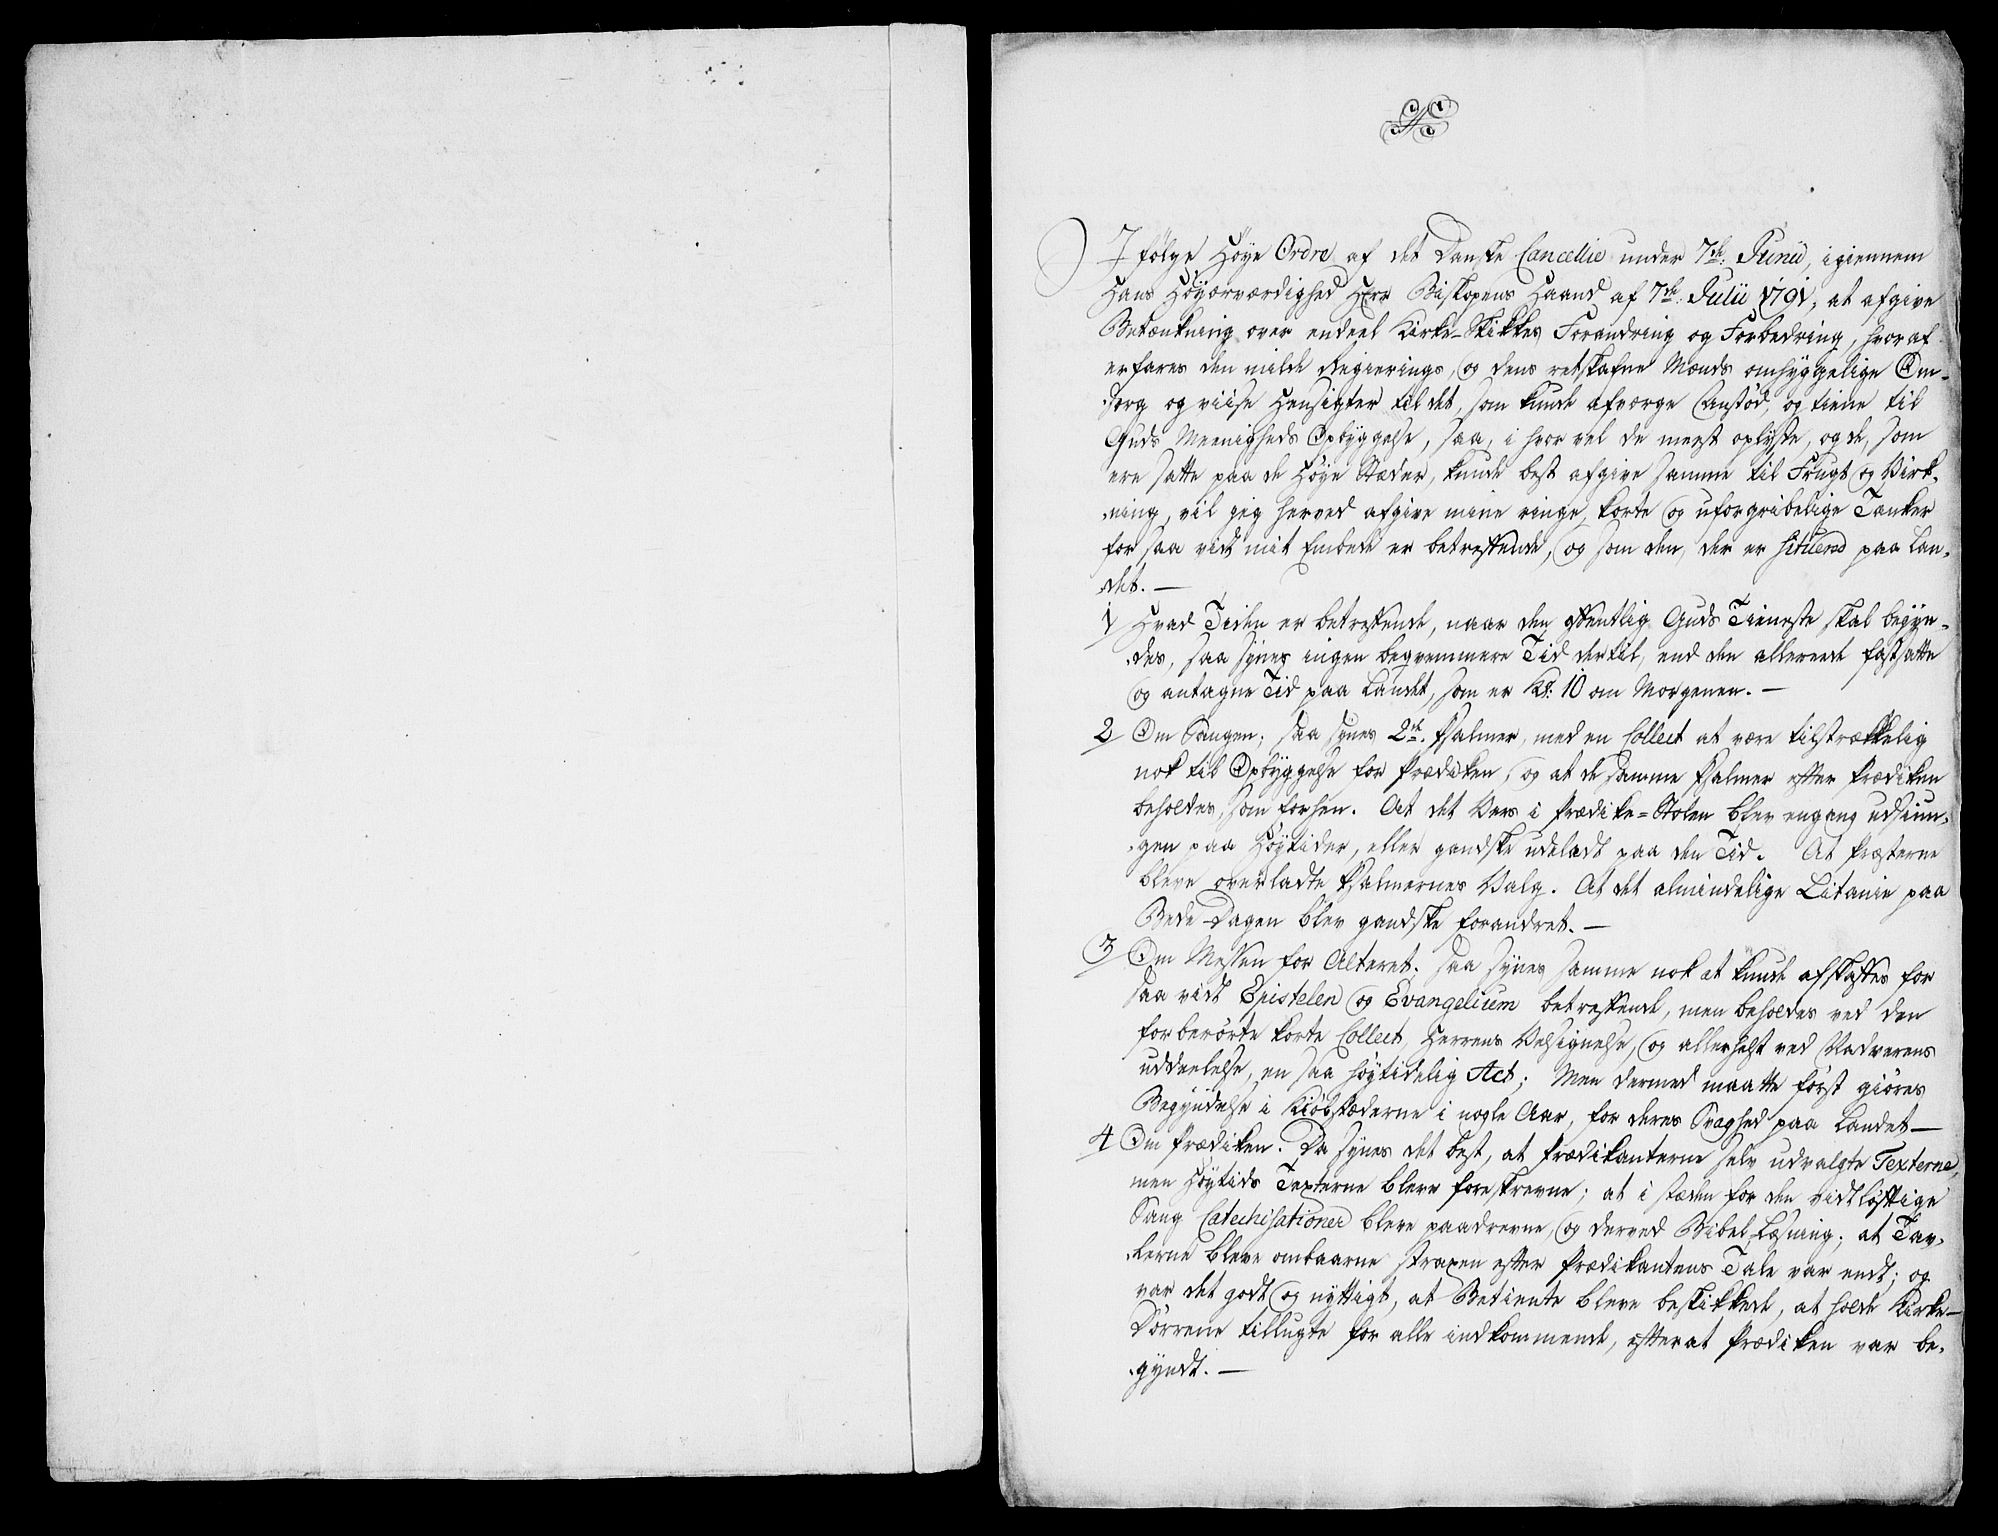 I følge Høye Ordre af det Danske Cancellie under 7de Junii, igiennem
Hans Høyærværdighed Herr Biskopens Haand af 7de Julii 1791, at afgive
Betænkning over endeel Kirke-Skikkes Forandring og Forbedring, hvoraf
erfares den milde Regierings, og dens retskafne Mænds omhyggelige Om-
sorg og viise Hensigter til det, som kunde afværge Anstød, og tiene til
Guds Meenigheds Opbyggelse, saa, i hvor vel de meest oplyste, og de, som
ere satte paa de Høye Stæder, kunde best afgive samme til Frugt og Virk-
ning, vil jeg herved afgive mine ringe, korte og uforgribelige Tanker
for saa vidt mit Embede er betreffende, og som den, der er situerd paa Lan-
det. —
1 Hvad Tiden er betreffende, naar den offentlig Guds Tieneste skal begyn-
des, saa synes ingen beqvemmere Tid dertil, end den allereede fastsatte
og antagne Tid paa Landet, som er Kl: 10 om Morgenen. —
2 Om Sangen; saa synes 2de Psalmer, med en Collect at være tilstrækkelig
nok til Opbyggelse for Prædiken, og at de samme Psalmer efter Prædiken
beholdes, som forhen. At det Vers i Prædike-Stolen blev engang udsiun-
gen paa Høytider, eller gandske udeladt paa den Tid. At Præsterne
bleve overladte Psalmernes Valg. At det almindelige Litanie paa
Bede-Dagen blev gandske forandret. —
3 Om Messen for Alteret. saa synes samme nok at kunde afskaffes for
saa vidt Epistelen og Evangelium betreffende, men beholdes ved den
forberørte korte Collect, Herrens Velsignelse, og allerhelst ved Nadverens
uddeelelse, en saa høytidelig Act; Men dermed maatte først giøres
Begyndelse i Kiøbstæderne i nogle Aar, for deres Svaghed paa Landet —
4 Om Prædiken. Da synes det best, at Prædikanterne selv udvalgte Texterne,
men Høytids Texterne bleve foreskrevne; at i stæden for den vidtløftige
Sang Catechisationer bleve paadrevne, og derved Bibel Læsning; at Tav-
lerne bleve ombaarne straxen efter Prædikantens Tale var endt; og
var det godt og nyttigt, at Betiente bleve beskikkede, at holde Kirke-
Dørrene tillugte for alle indkommende, efterat Prædiken var be-
gyndt. —